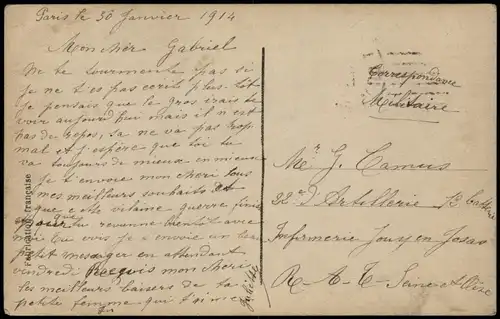 Paris le 30 Janvier 1914
Mon chér Gabriel
Ne te tourmente pas si
je ne t'es pas ecris plus-tôt
je pensais que le gros irais te
voir aujourd'hui mais il n'est
pas de repos, sa ne va pas trop
mal et j'espère que toi tu
va toujours de mieux en mieux
Je t'envoie mon cheri tous
mes meilleurs souhaits et
que cette vilaine guerre finisse
pour que tu revienne bientôt avec
Tu vois je t'envoie un
petit mesager en attendant
vendredi Reçois mon cheri
les meilleurs baisers de la
petite femme qui t'aime
Juliette
Fabrication Française
Correspondance
Militaire
Mr. G. Camus
22e d'Artillerie Batterie
Infirmerie Jouy en Josas
R-A-T-Seine et Oise